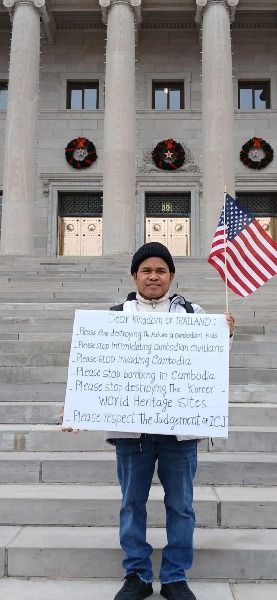 Dear Kingdom OF THAILAND :
- Please stop destroying the Future of Cambodian Kids
- Please stop intimidating Cambodian civilians
- Please stop invading Cambodia
- Please stop bombing in Cambodia
- Please stop destroying The Kmer
World Heritage Sites
- Please respect The Judgement of ICJ